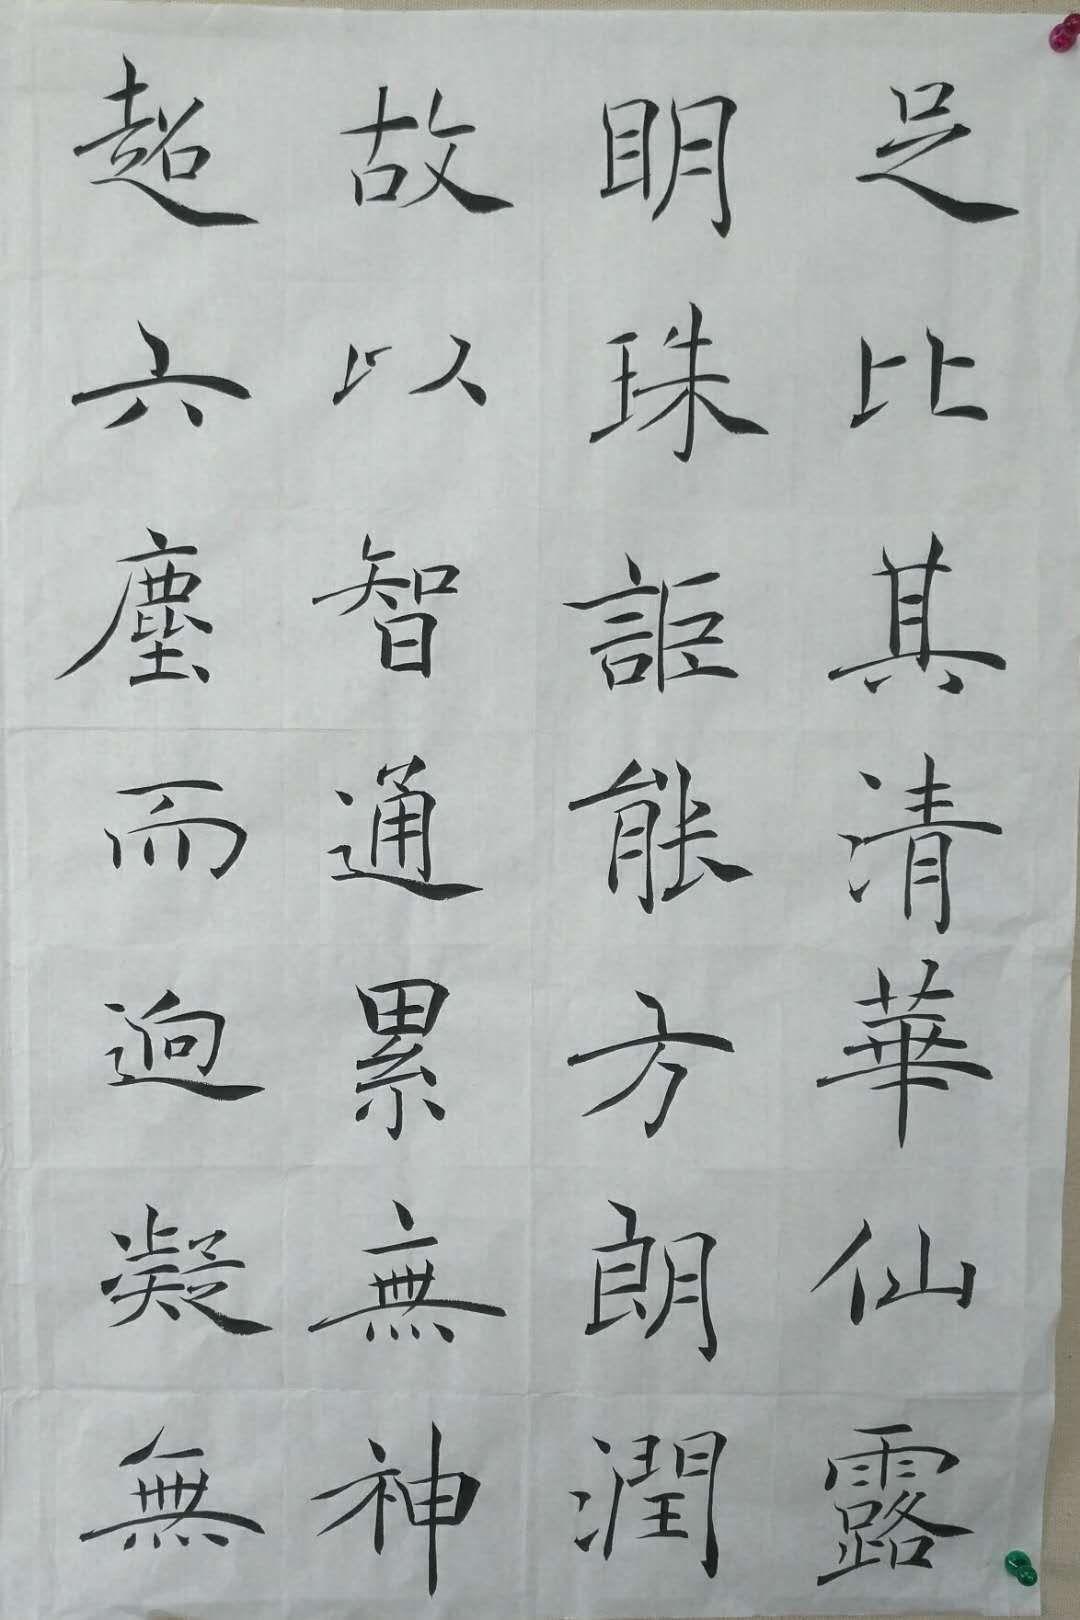 足比其清華仙露
明珠詎能方朗潤
故以智通累無神
超六塵而逈凝無